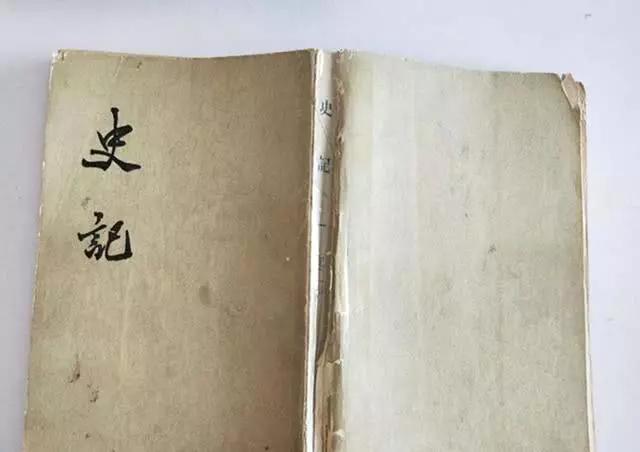 史記
史記 一